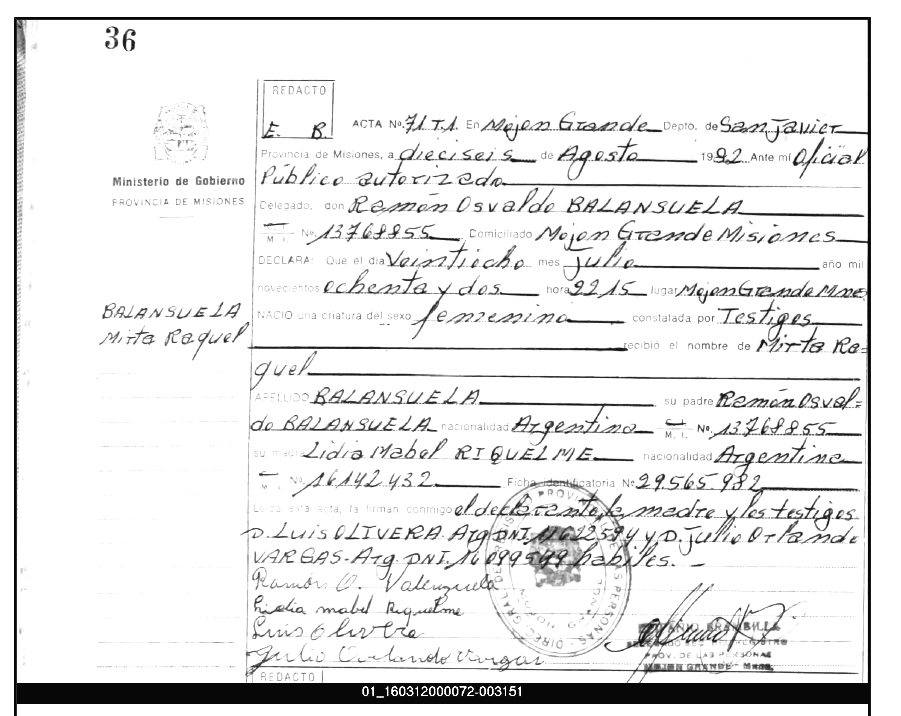 36
REDACTO
E. B.
ACTA Nº 71 T.1. En Mojon Grande Depto. de San Javier
Provincia de Misiones, a dieciseis de Agosto 1982 Ante mi Oficial
Ministerio de Gobierno
PROVINCIA DE MISIONES
Público autorizado
Delegado, don Ramón Osvaldo BALANSUELA
C. M. I. Nº 13768855 Domiciliado Mojon Grande Misiones
DECLARA: Que el día Veintiocho mes Julio año mil
novecientos ochenta y dos hora 22 15 lugar Mojon Grande Mnes
BALANSUELA
Mirta Raquel
NACIO una criatura del sexo femenino constatada por Testigos
recibió el nombre de Mirta Ra=
quel
APELLIDO BALANSUELA su padre Ramón Osval=
do BALANSUELA nacionalidad Argentina C. M. I. Nº 13768855
su madre Lidia Mabel RIQUELME nacionalidad Argentina
C. M. I. Nº 16142.432 Ficha identificatoria Nº 29.565.982
Leída esta acta, la firman conmigo el declarante, la madre y los testigos
D. Luis OLIVERA. Arg DNI. 11612594 y D. Julio Orlando
VARGAS. Arg. DNI. 16099599 habiles. _
Ramón O. Valenzuela
Lidia mabel Riquelme
Luis Olivera
Julio Orlando Vargas
DIREC. GRAL. DE REGISTRO PROV. DE LAS PERSONAS
BRAMBILLA
PROV. DE LAS PERSONAS
MOJON GRANDE - Mnes.
REDACTO
01_160312000072-003151